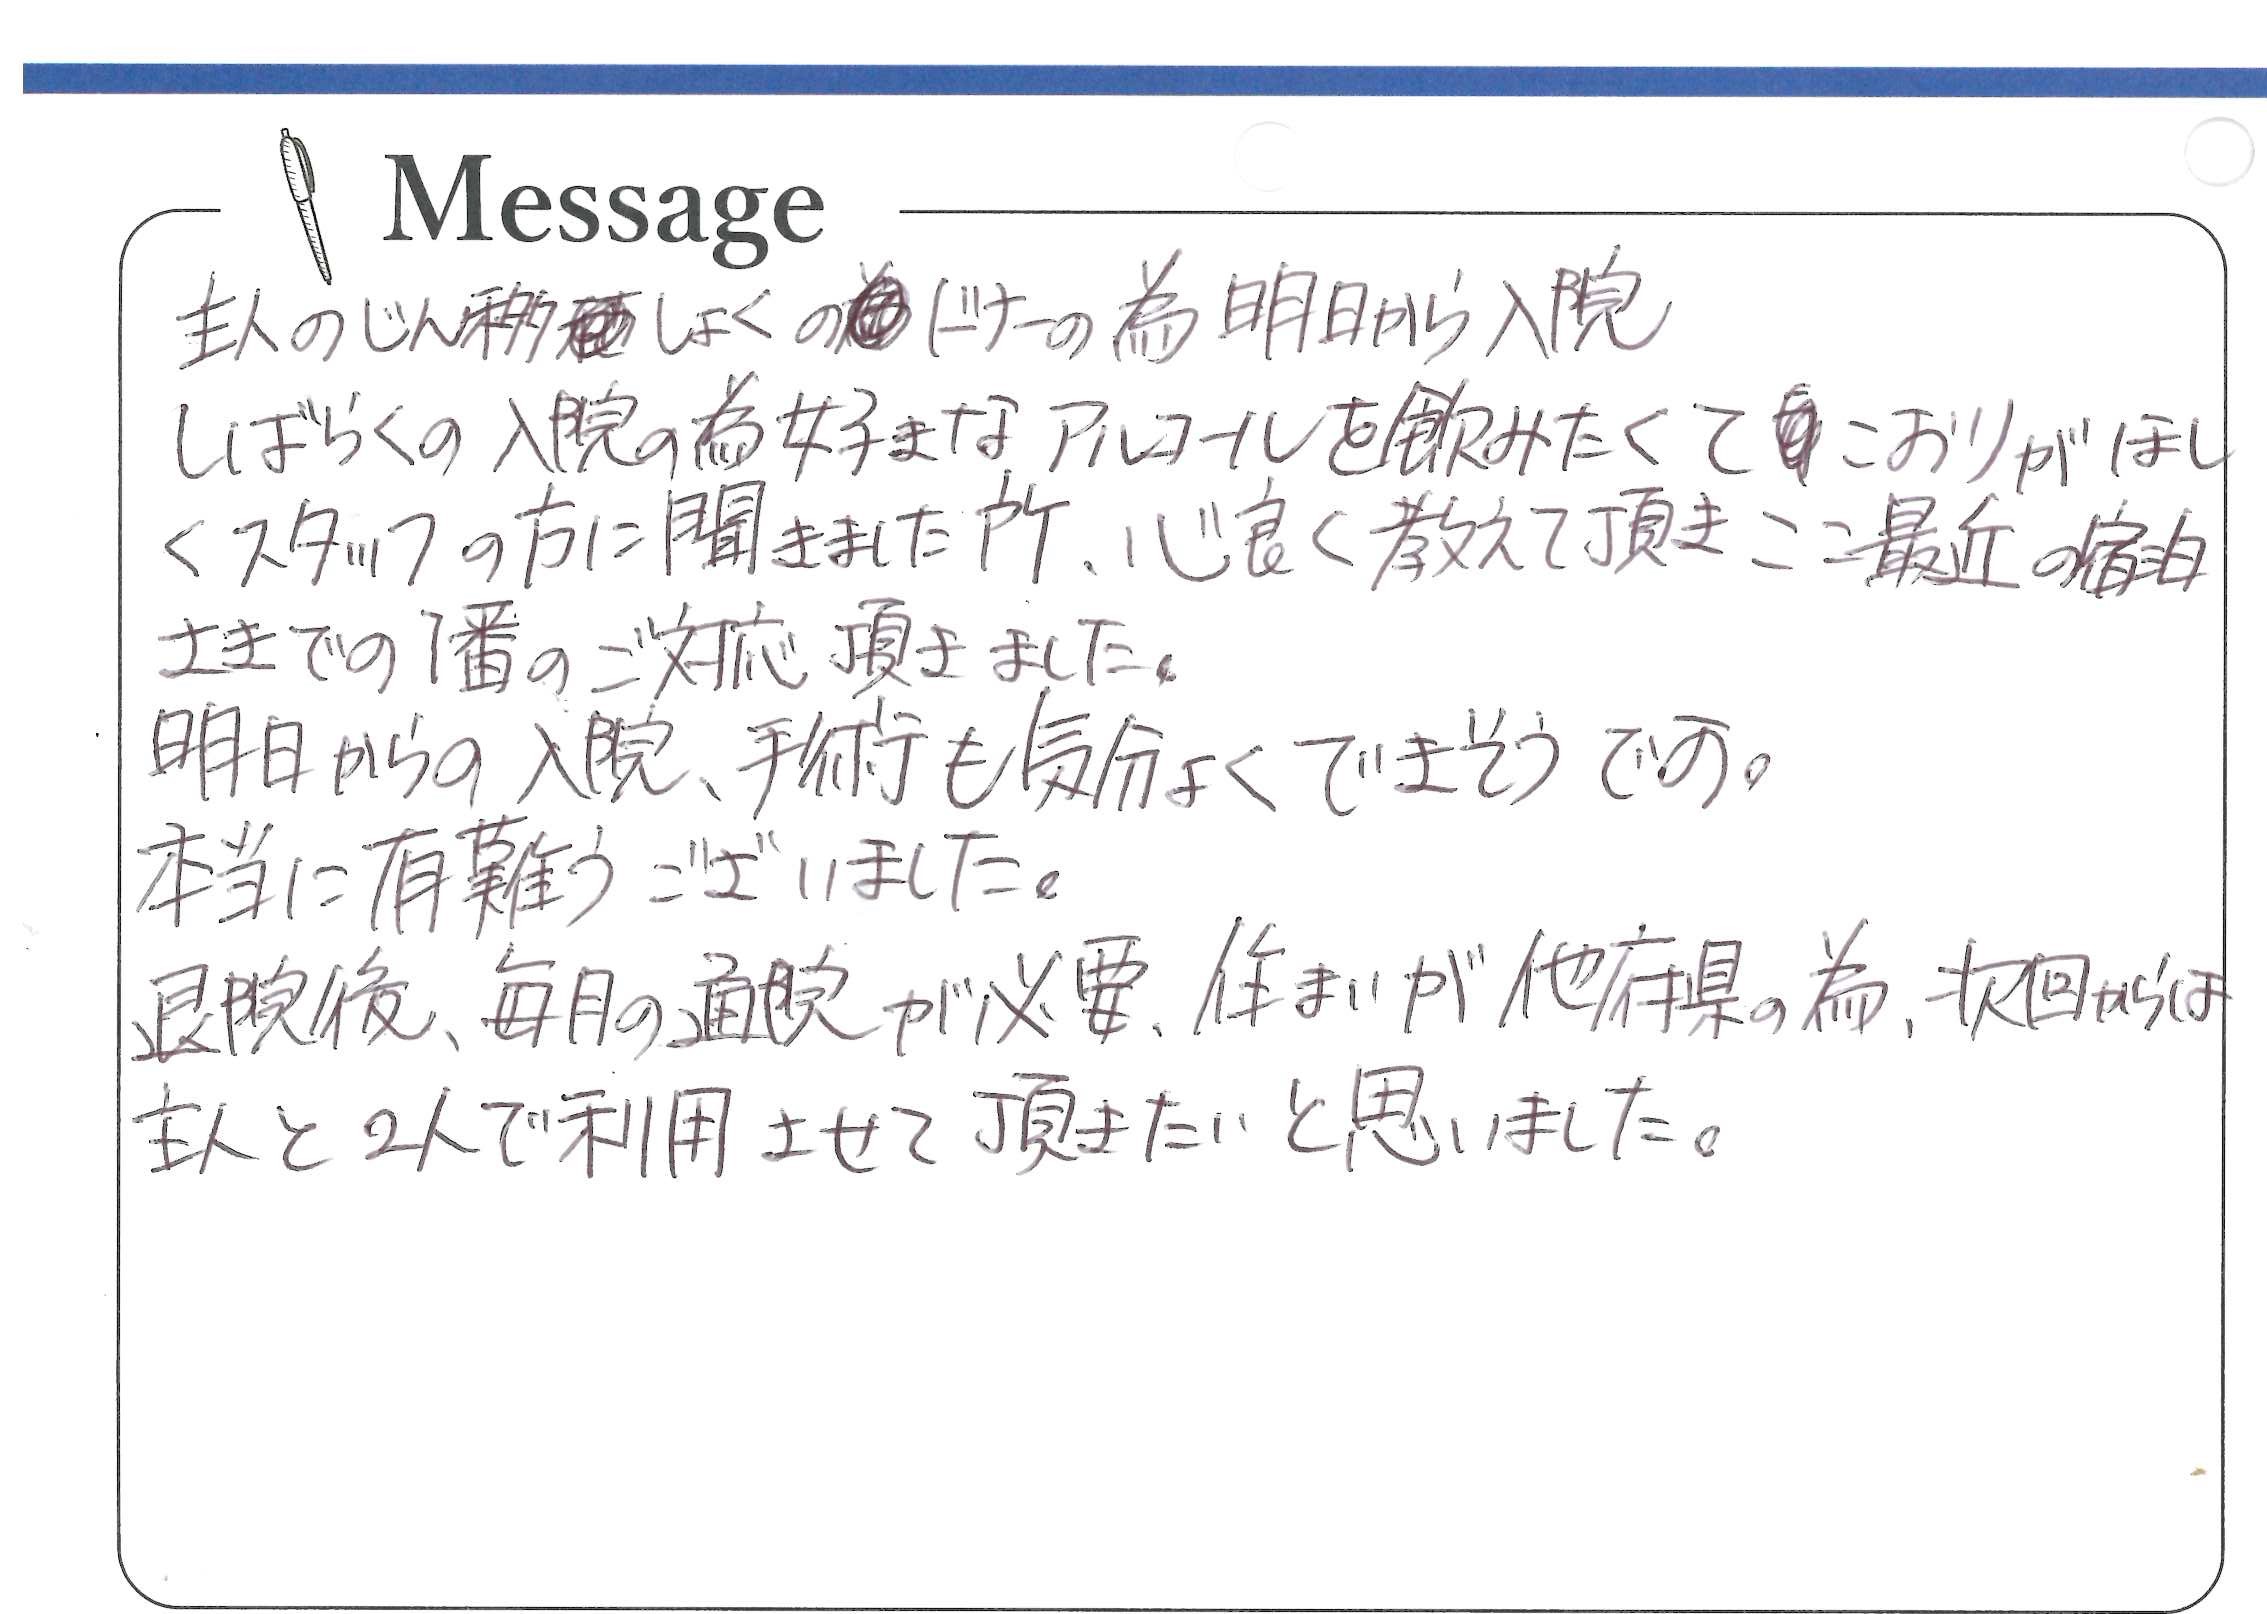 Message
主人のじん移しょくのドナーの為明日から入院
しばらくの入院の為好きなアルコールを飲みたくてこおりがほし
くスタッフの方に聞きました所、心良く教えて頂きここ最近の宿泊
さきでの1番のご対応頂きました。
明日からの入院、手術も気分よくできそうです。
本当に有難うございました。
退院後、毎月の通院が必要、住まいが他府県の為、次回からは
主人と2人で利用させて頂きたいと思いました。